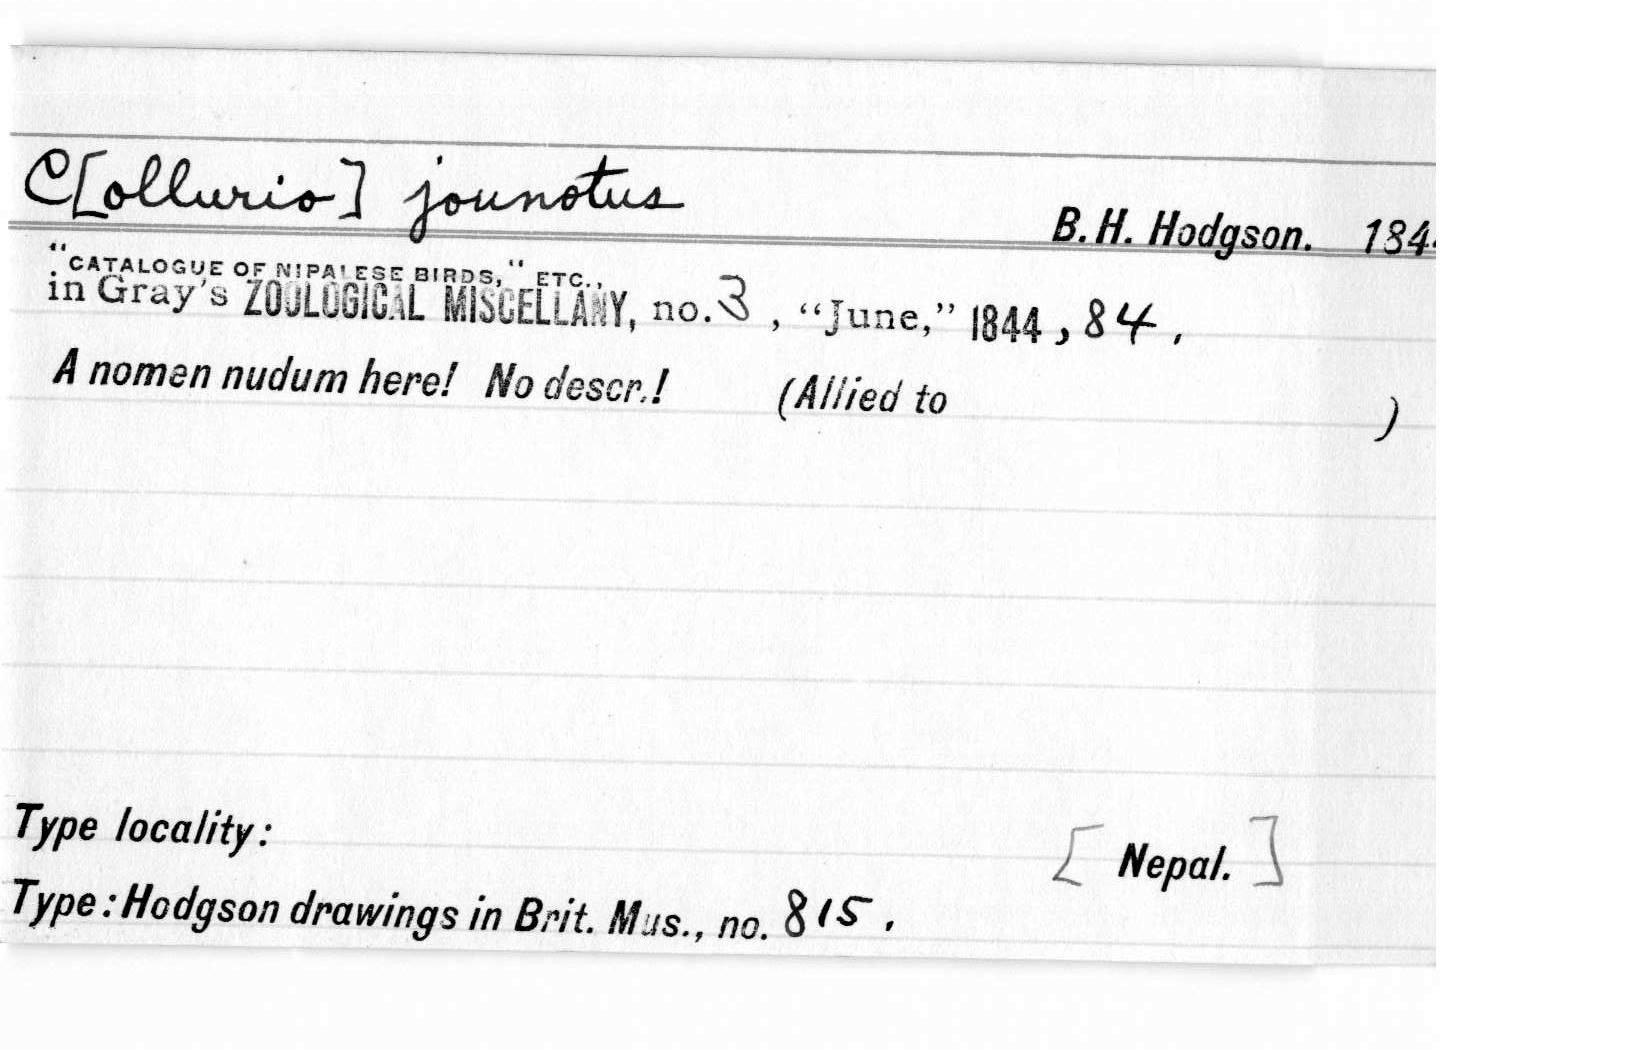 C[ollurio] jounotus
B. H. Hodgson. 184
"CATALOGUE OF NIPALESE BIRDS," ETC.,
in Gray's ZOOLOGICAL MISCELLANY, no. 3, "June," 1844, 84.
A nomen nudum here! No descr.! (Allied to )
Type locality: [Nepal.]
Type: Hodgson drawings in Brit. Mus., no. 815.